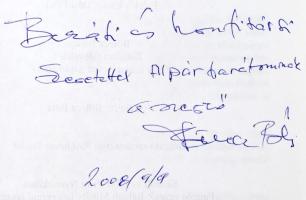 Baráti és honfitársi
Szeretettel Alpár barátomnak
a szerző
2008/9/9